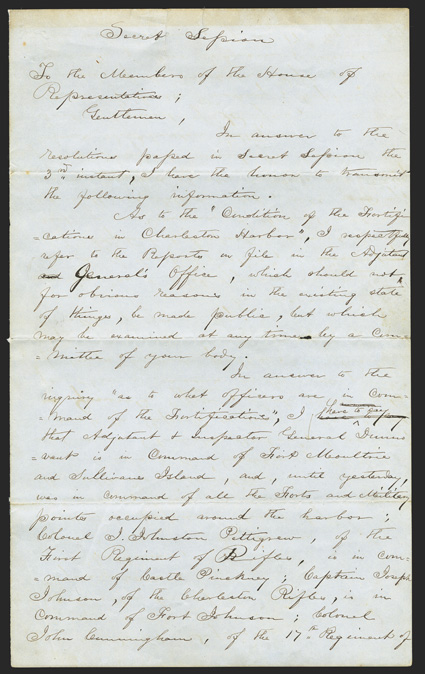 Secret Session
To the Members of the House of
Representatives ;
Gentlemen ,
In answer to the
resolutions passed in Secret Session the
3rd instant, I have the honor to transmit
the following information .
As to the "Condition of the Fortifi
=cations in Charleston Harbor", I respectfully
refer to the Reports on file in the Adjutant
and General's Office , which should not,
for obvious reasons in the existing state
of things, be made public , but which
may be examined at any time by a Com=
=mittee of your body .
In answer to the
inquiry "as to what officers are in Com=
=mand of the Fortifications", I have to say
that Adjutant & Inspector General Dunno
=vant is in Command of Fort Moultrie
and Sullivans Island , and , until yesterday,
was in command of all the Forts and Military
points occupied around the harbor ;
Colonel J. Johnston Pettigrew , of the
First Regiment of Rifles , is in com=
=mand of Castle Pinckney ; Captain Joseph
Johnson , of the Charleston Rifles , is in
Command of Fort Johnson ; Colonel
John Cunningham , of the 17th Regiment of